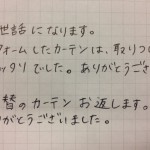 世話になります。
フォームしたカーテンは、取りつ
ッタリでした。ありがとうござ
替のカーテンお返します。
がとうございました。